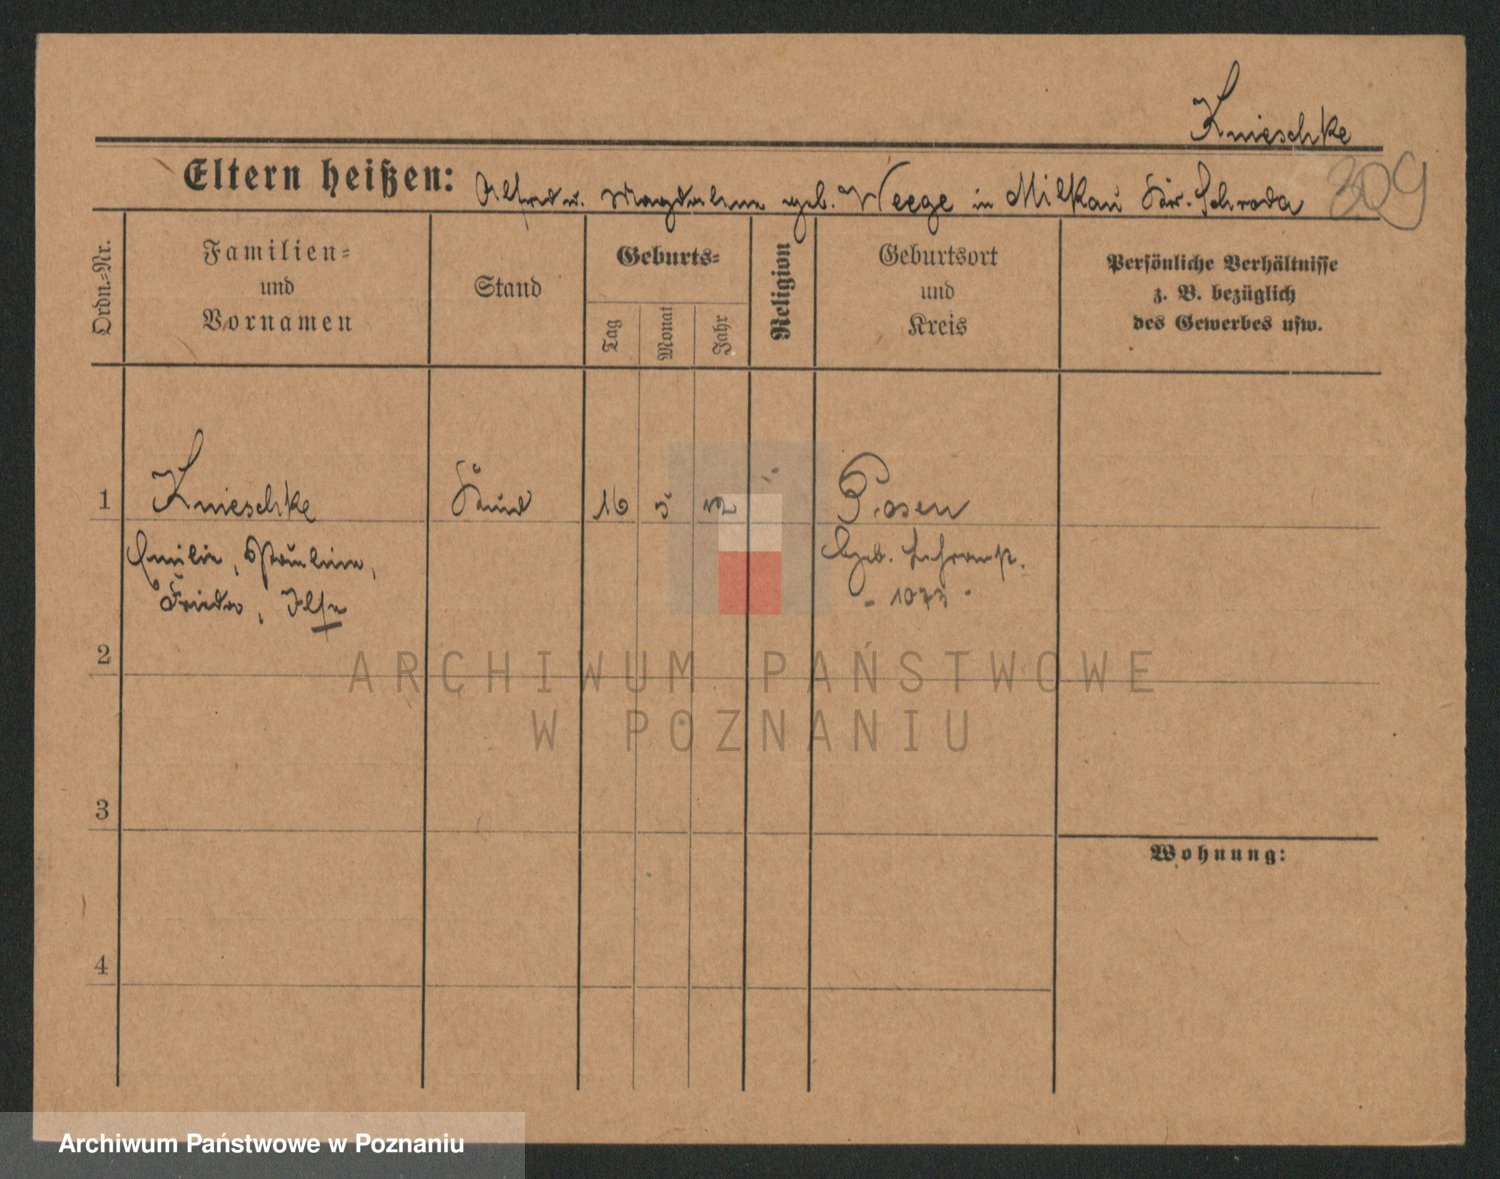 Knieschke
Eltern heißen: Alfred u. Magdalena geb. Weege in Milkau Kr. Schroda 309
Ordn.-Nr.
Familien-
und
Vornamen
Stand
Geburts-
Tag
Monat
Jahr
Religion
Geburtsort
und
Kreis
Persönliche Verhältnisse
z. B. bezüglich
des Gewerbes usw.
1 Knieschke Kind 16 5 Posen
Emilie, Pauline,
Frieda, Ilse
geb.
2
ARCHIWUM PAŃSTWOWE
W POZNANIU
3
Wohnung:
4
Archiwum Państwowe w Poznaniu